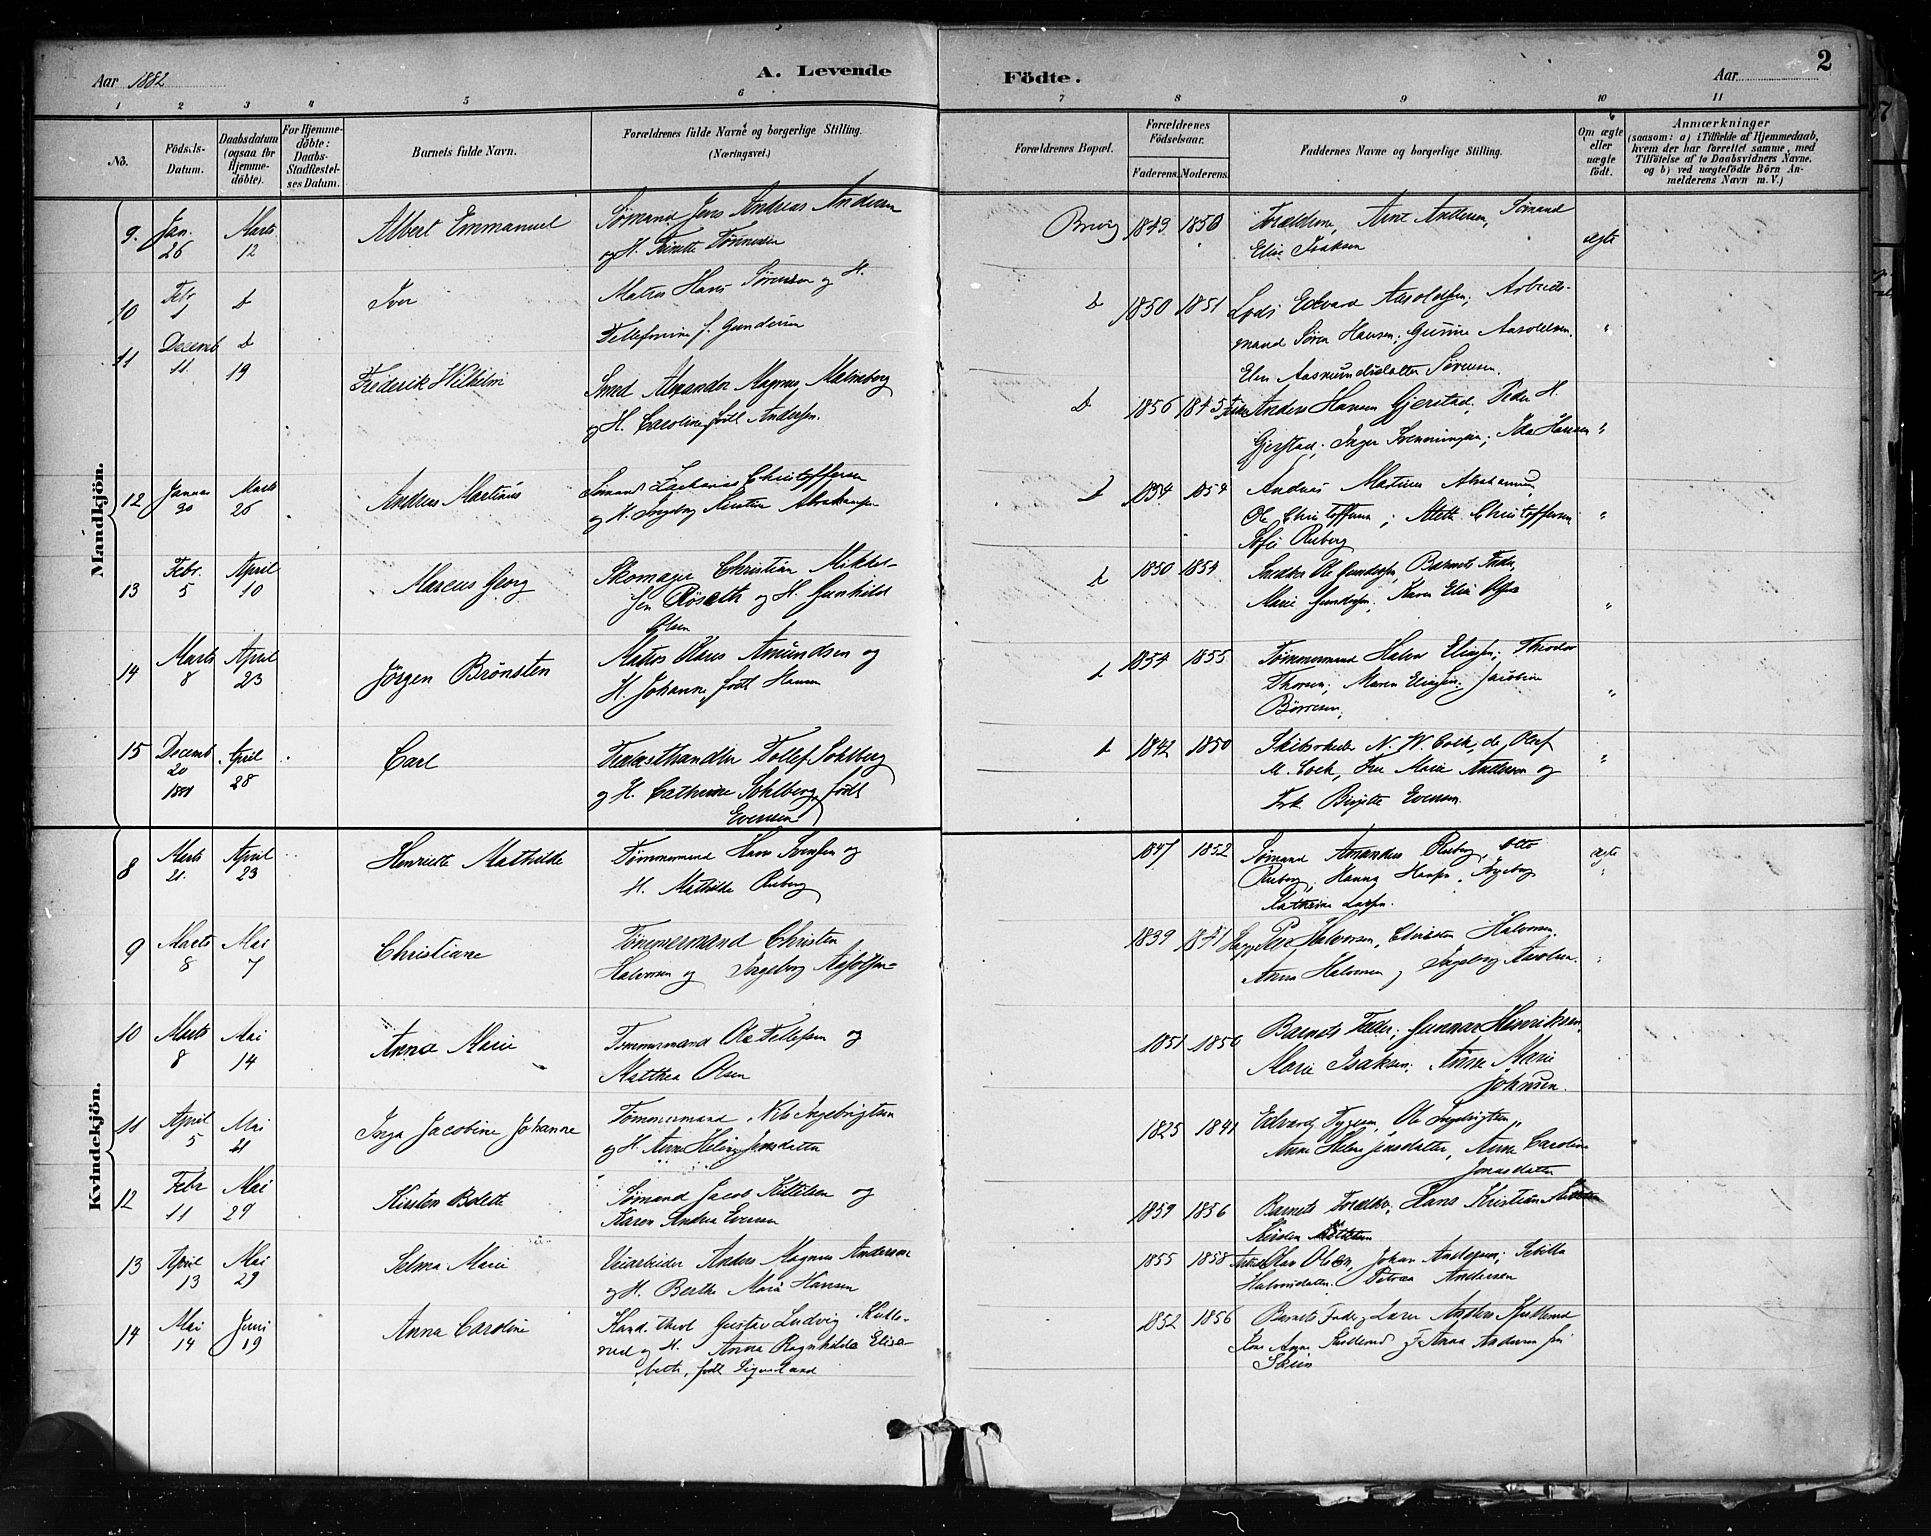 Aar 1882
A. Levende
Födte.
Aar
2
1 2 3 4 5 6 7 8 9 10 11
No.
Födsels-
Datum.
Daabsdatum
(ogsaa for
Hjemme-
döbte).
For Hjemme-
döbte:
Daabs-
Stadfæstel-
ses Datum.
Barnets fulde Navn.
Forældrenes fulde Navne og borgerlige Stilling.
(Næringsvei.)
Forældrenes Bopæl.
Forældrenes
Födselsaar.
Faderens. Moderens.
Faddernes Navne og borgerlige Stilling.
Om ægte
eller
uægte
födt.
Anmærkninger
(saasom: a) i Tilfælde af Hjemmedaab,
hvem der har forrettet samme, med
Tilföielse af to Daabsvidners Navne,
og b) ved uægtefödte Börn An-
melderens Navn m. V.)
Mandkjön.
9. Jan. 26 Marts 12 Albert Emmanuel
Sømand Jens Andreas Andersen
og H. Tønnesen
Brevig 1843 1850
Forældrene, Arnt Andersen, Sømand
Elise Isaksen
ægte
10 Febr 1 D Iver
Matros Hans Sørensen og H.
Tellefine f. Gundersen
D 1850 1851
Lods Edvard Aasoldsen, Arbeids-
mand Søren Hansen, Gusine Aasoldsen
Elen Aasmundsdatter Sørensen.
11 Decemb 11 D 19 Frederik Wilhelm
Smed Alexander Magnus Malmberg
og H. Caroline født Andersen.
D 1856 1845
Anders Hansen Gjerstad, Peder H.
Gjerstad, Inger Svenningsen, Ida Hansen
12 Januar 30 Marts 26 Andreas Martinus
Sømand Zacharias Christoffersen
og H. Ingeborg Kirstine Abrahamsen
D 1854 1854
Andreas Martinus Abrahamsen,
Ole Christoffersen, Christoffersen
Sofie Ruberg
13 Febr. 5 April 10 Marcus Georg
Skomager Christian Mikkel-
sen Røseth og H. Gunhild
Olsen
D 1850 1854
Snedker Ole Gundersen, Barnets Fader,
Marie Gundersen, Karen Elise Olsen
14 Marts 8 April 23 Jörgen Brönsten
Matros Olaus Amundsen og
H. Johanne, født Hansen
D 1854 1855
Tømmermand Halvor Eliasen, Theodor
Thorsen, Maren Eliasen, Jacobine
Børresen,
15 Decemb 20 1881 April 28 Carl
Trælasthandler Tollef Sohlberg
og H. Cathrine Sohlberg, født
Evensen
D 1842 1850
Skibsreder N. W. Coch, do. Oluf
M. Coch, Fru Marie Andersen og
Frk. Birgitte Evensen.
Kvindekjön.
8 Marts 21. April 23 Henriette Mathilde
Tømmermand Hans Svensen og
H. Mathilde Ruberg
1847 1852
Sømand Amandus Ruberg, Otto
Ruberg, Hanna Hansen, Ingeborg
Kathrine Larsen.
ægte
9 Marts 8 Mai 7 Christiane
Tømmermand Christen
Halvorsen og Ingeborg Aasolsen
1839 1841
Peder Halvorsen, Christen Halvorsen,
Anne Halvorsen, Ingeborg Aasolsen.
10 Marts 8 Mai 14 Anna Marie
Tømmermand Ole Tellefsen og
Matthea Olsen
1851 1850
Barnets Fader, Gunnar Henriksen,
Marie Isaksen, Anne Marie
Johnsen.
11 April 5 Mai 21 Inga Jacobine Johanne
Tømmermand Nils Ingebrigtsen
og H. Anne Helene Jonsdatter
1825 1841
Edvard Tygesen, Ole Ingebrigtsen,
Anne Helene Jonsdatter, Anne Caroline
Jonasdatter
12 Febr 11 Mai 29 Kirsten Bolette
Sømand Jacob Kittilsen og
Karen Andrea Evensen
1859 1856
Barnets Forældre, Hans Kristian
Kirsten
13 April 13 Mai 29 Selma Marie
Veiarbeider Anders Magnus Anderson
og H. Berthe Marie Hansen
1855 1858
Olav Olsen, Johan Andersen, Sibilla
Halvorsdatter. Petrea Andersen
14 Mai 14 Juni 19 Anna Caroline
Kand. theol Gustav Ludvig Kulle-
rud og H. Anna Ragnhilda Elisa-
beth, født Sigvaland
1852 1856
Barnets Fader, Lærer Anders Kullerud
Anne Kullerud, F. Anna Andersen fra
Skien